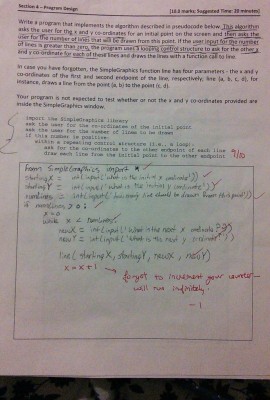 Section 4 – Program Design [10.0 marks, Suggested Time: 20 minutes]
Write a program that implements the algorithm described in pseudocode below. This algorithm
asks the user for the x and y co-ordinates for an initial point on the screen and then asks the
user for the number of lines that will be drawn from this point. If the user input for the number
of lines is greater than zero, the program uses a looping control structure to ask for the other x
and y co-ordinate for each of these lines and draws the lines with a function call to line.
In case you have forgotten, the SimpleGraphics function line has four parameters - the x and y
co-ordinates of the first and second endpoint of the line, respectively; line (a, b, c, d), for
instance, draws a line from the point (a, b) to the point (c, d).
Your program is not expected to test whether or not the x and y co-ordinates provided are
inside the SimpleGraphics window.
import the SimpleGraphics library
ask the user for the co-ordinates of the initial point
ask the user for the number of lines to be drawn
if this number is positive:
within a repeating control structure (i.e., a loop):
ask for the co-ordinates to the other endpoint of each line
draw each line from the initial point to the other endpoint
9/10
from SimpleGraphics import *
startingX = int(input('what is the initial x coordinate'))
startingY = int(input('what is the initial y coordinate'))
numlines = int(input('how many line should be drawn from this point'))
if numlines > 0:
x = 0
while x < numlines:
newX = int(input('what is the next x ordinate'))
newY = int(input('what is the next y ordinate'))
line(startingX, startingY, newX, newY)
x = x + 1 forgot to increment your counter—
will run infinitely.
-1